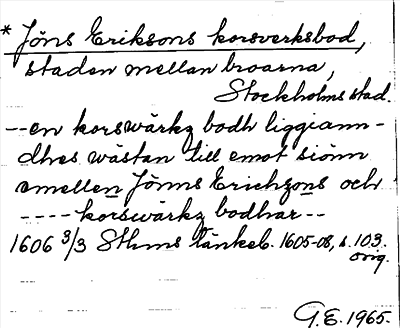 * Jöns Eriksons korsverksbod,
staden mellan broarna,
Stockholms stad.
--en korswärkz bodh liggiann-
dhes wästan till emot siönn
emellen Jönns Erichzons och
---- korswärkz bodhar --
1606 3/3 Sthms tänkeb. 1605-08, s. 103.
orig.
G.E. 1965.